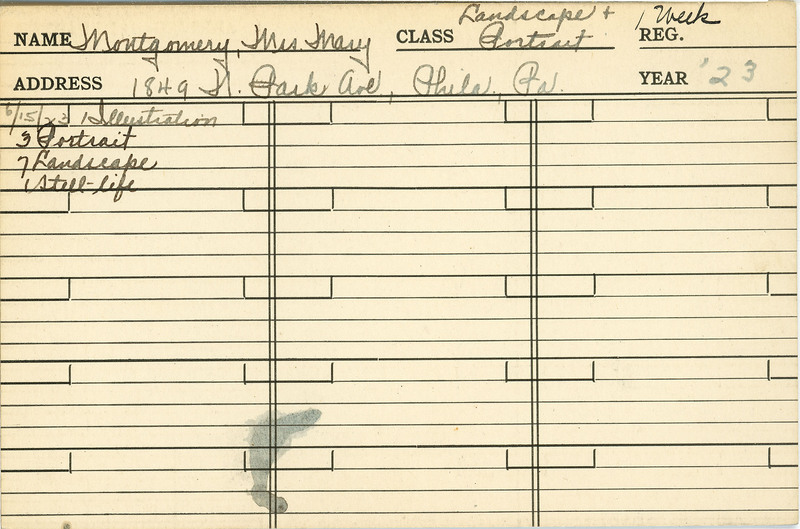 Landscape + 1 Week
NAME Montgomery, Mrs Mary CLASS Portrait REG.
ADDRESS 1849 N. Park Ave, Phila, Pa. YEAR '23
6/15/23 1 Illustration
3 Portrait
7 Landscape
1 Still-life